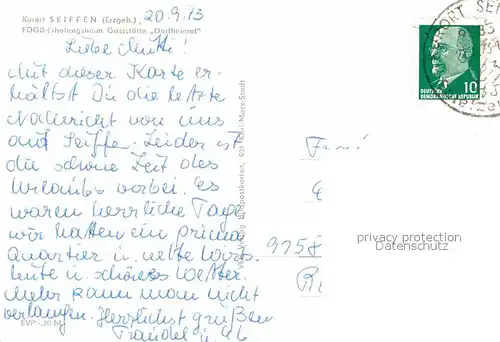 Kurort SEIFFEN (Erzgeb.)
20.9.73
FDGB-Erholungsheim Gaststätte „Dorfheimat"
Liebe Mutti!
Mit dieser Karte er-
hältst Du die letzte
Nachricht von uns
aus Seiffen. Leider ist
die schöne Zeit des
Urlaubs vorbei. Es
waren herrliche Tage
wir hatten ein prima
Quartier u. nette Wirts-
leute u. schönes Wetter.
Mehr kann man nicht
verlangen. Herzlichst grüßen
Traudel u.
EVP -,20 M
901 Karl-Marx-Stadt
DEUTSCHE
DEMOKRATISCHE REPUBLIK
10
KURORT SEI
Frau
privacy protection
Datenschutz